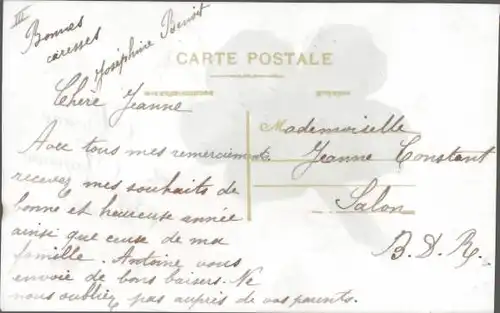 III
Bonnes
caresses
Joséphine Benoit
CARTE POSTALE
Chère Jeanne
Avec tous mes remerciements
recevez mes souhaits de
bonne et heureuse année
ainsi que ceux de ma
famille. Antoine vous
envoie de bons baisers. Ne
nous oubliez pas auprès de vos parents.
Mademoiselle
Jeanne Constant
Salon
B. D. R.